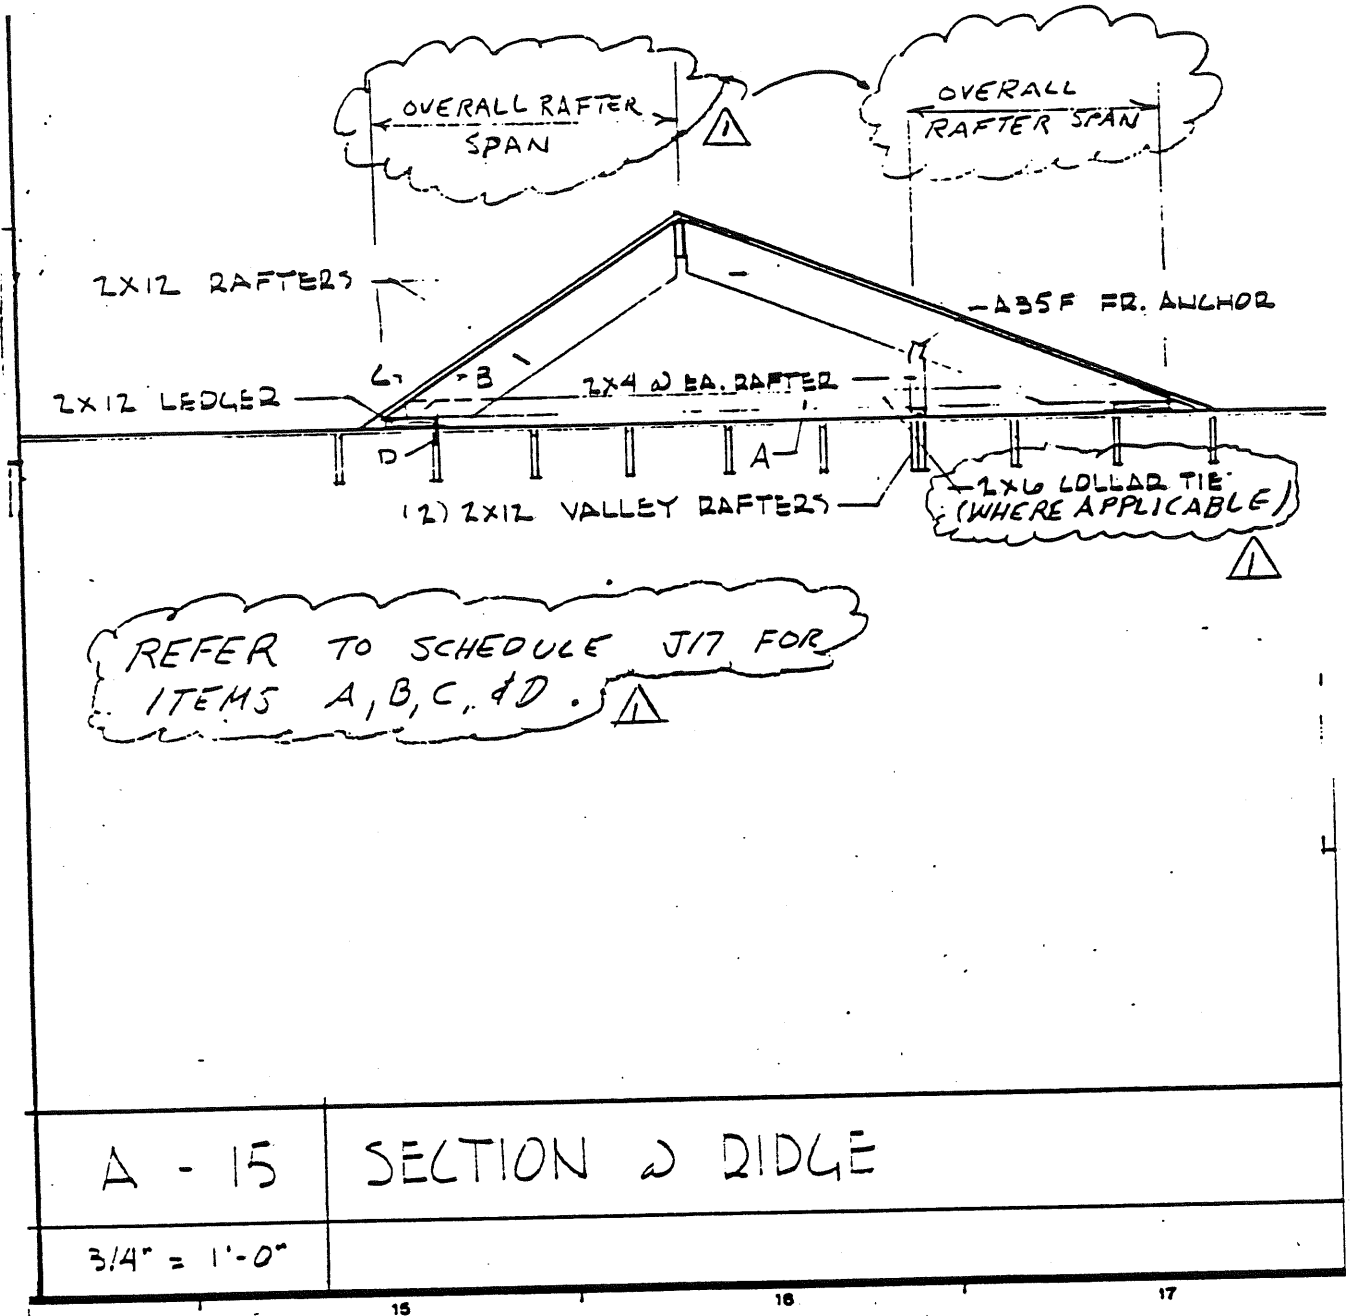 OVERALL RAFTER
SPAN
1
OVERALL
RAFTER SPAN
2X12 RAFTERS
A35F FR. ANCHOR
C
B
2X4 @ EA. RAFTER
2X12 LEDGER
D
A
(2) 2X12 VALLEY RAFTERS
2X6 COLLAR TIE
(WHERE APPLICABLE)
1
REFER TO SCHEDULE J17 FOR
ITEMS A, B, C, & D.
1
A - 15
SECTION @ RIDGE
3/4" = 1'-0"
15
16
17